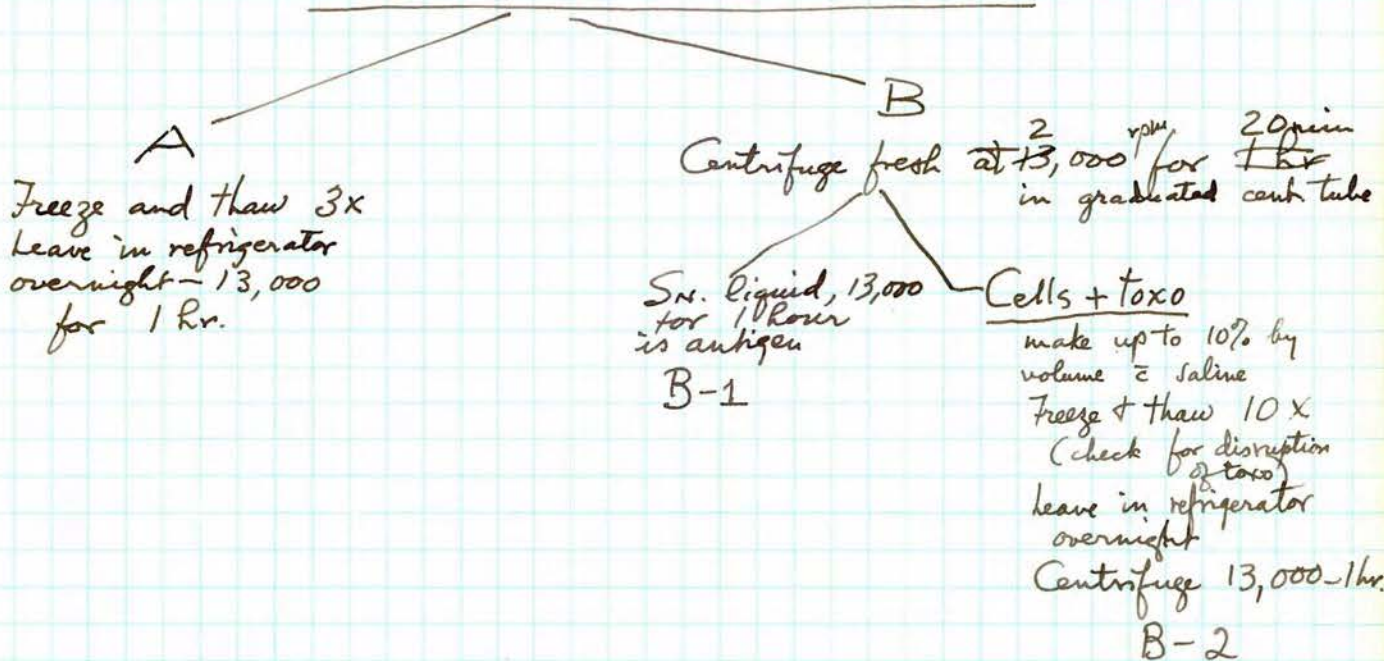 A
Freeze and thaw 3x
Leave in refrigerator
overnight - 13,000
for 1 hr.
B
2 rpm 20 min
Centrifuge fresh at 13,000 for 1 hr
in graduated cent. tube
Sn. liquid, 13,000
for 1 hour
is antigen
B-1
Cells + toxo
make up to 10% by
volume c̄ saline
Freeze & thaw 10 x
(check for disruption
of toxo)
Leave in refrigerator
overnight
Centrifuge 13,000 - 1 hr.
B-2